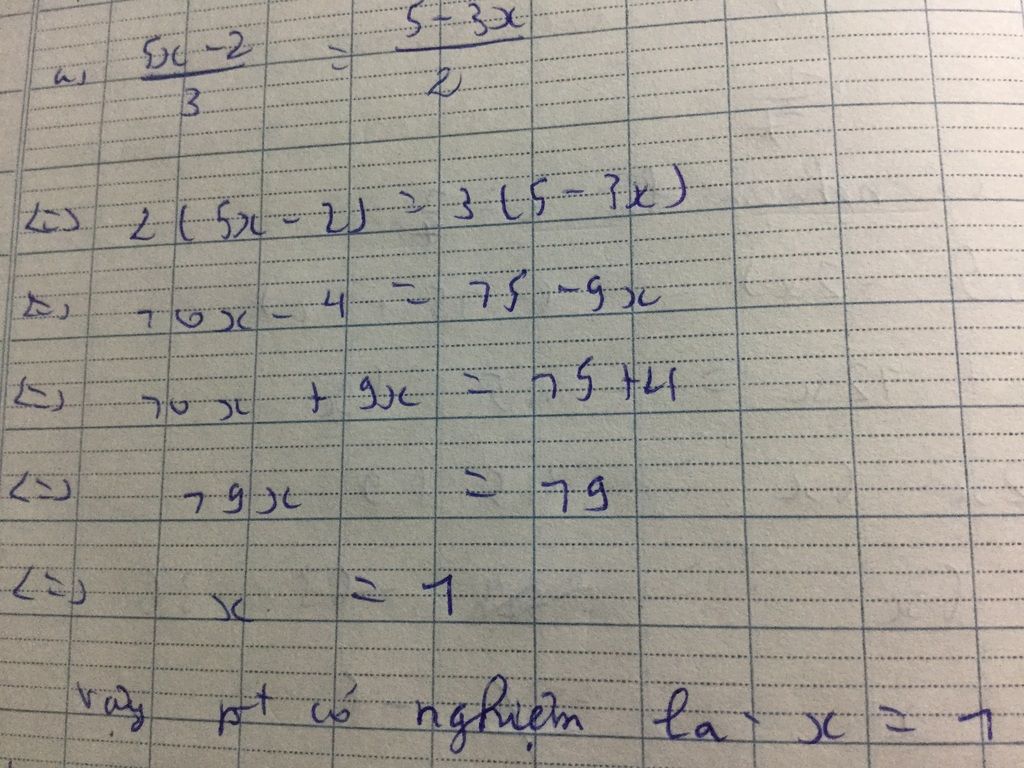 a, (5x - 2)/3 = (5 - 3x)/2
<=> 2(5x - 2) = 3(5 - 3x)
<=> 10x - 4 = 15 - 9x
<=> 10x + 9x = 15 + 4
<=> 19x = 19
<=> x = 1
vậy pt có nghiệm là x = 1